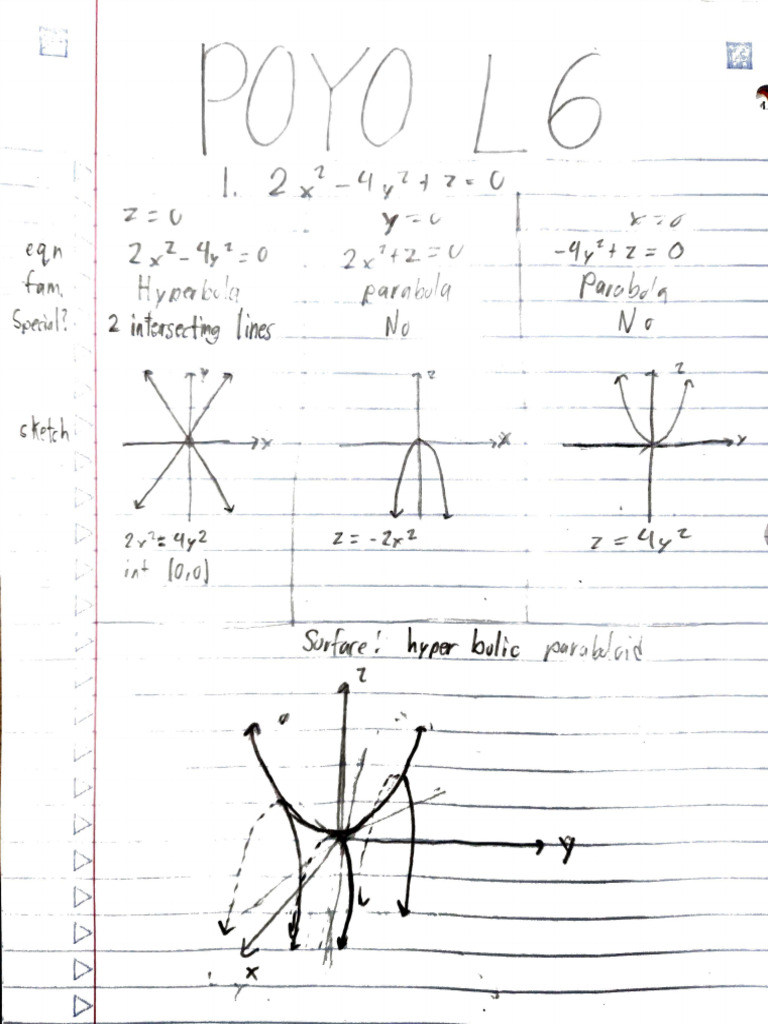 POYO L6
1. 2x² - 4y² + z = 0
z = 0 y = 0 x = 0
eqn 2x² - 4y² = 0 2x² + z = 0 -4y² + z = 0
fam. Hyperbola parabola Parabola
Special? 2 intersecting lines No No
y z z
sketch x x y
2x² = 4y² z = -2x² z = 4y²
int (0,0)
Surface: hyperbolic paraboloid
z
y
x